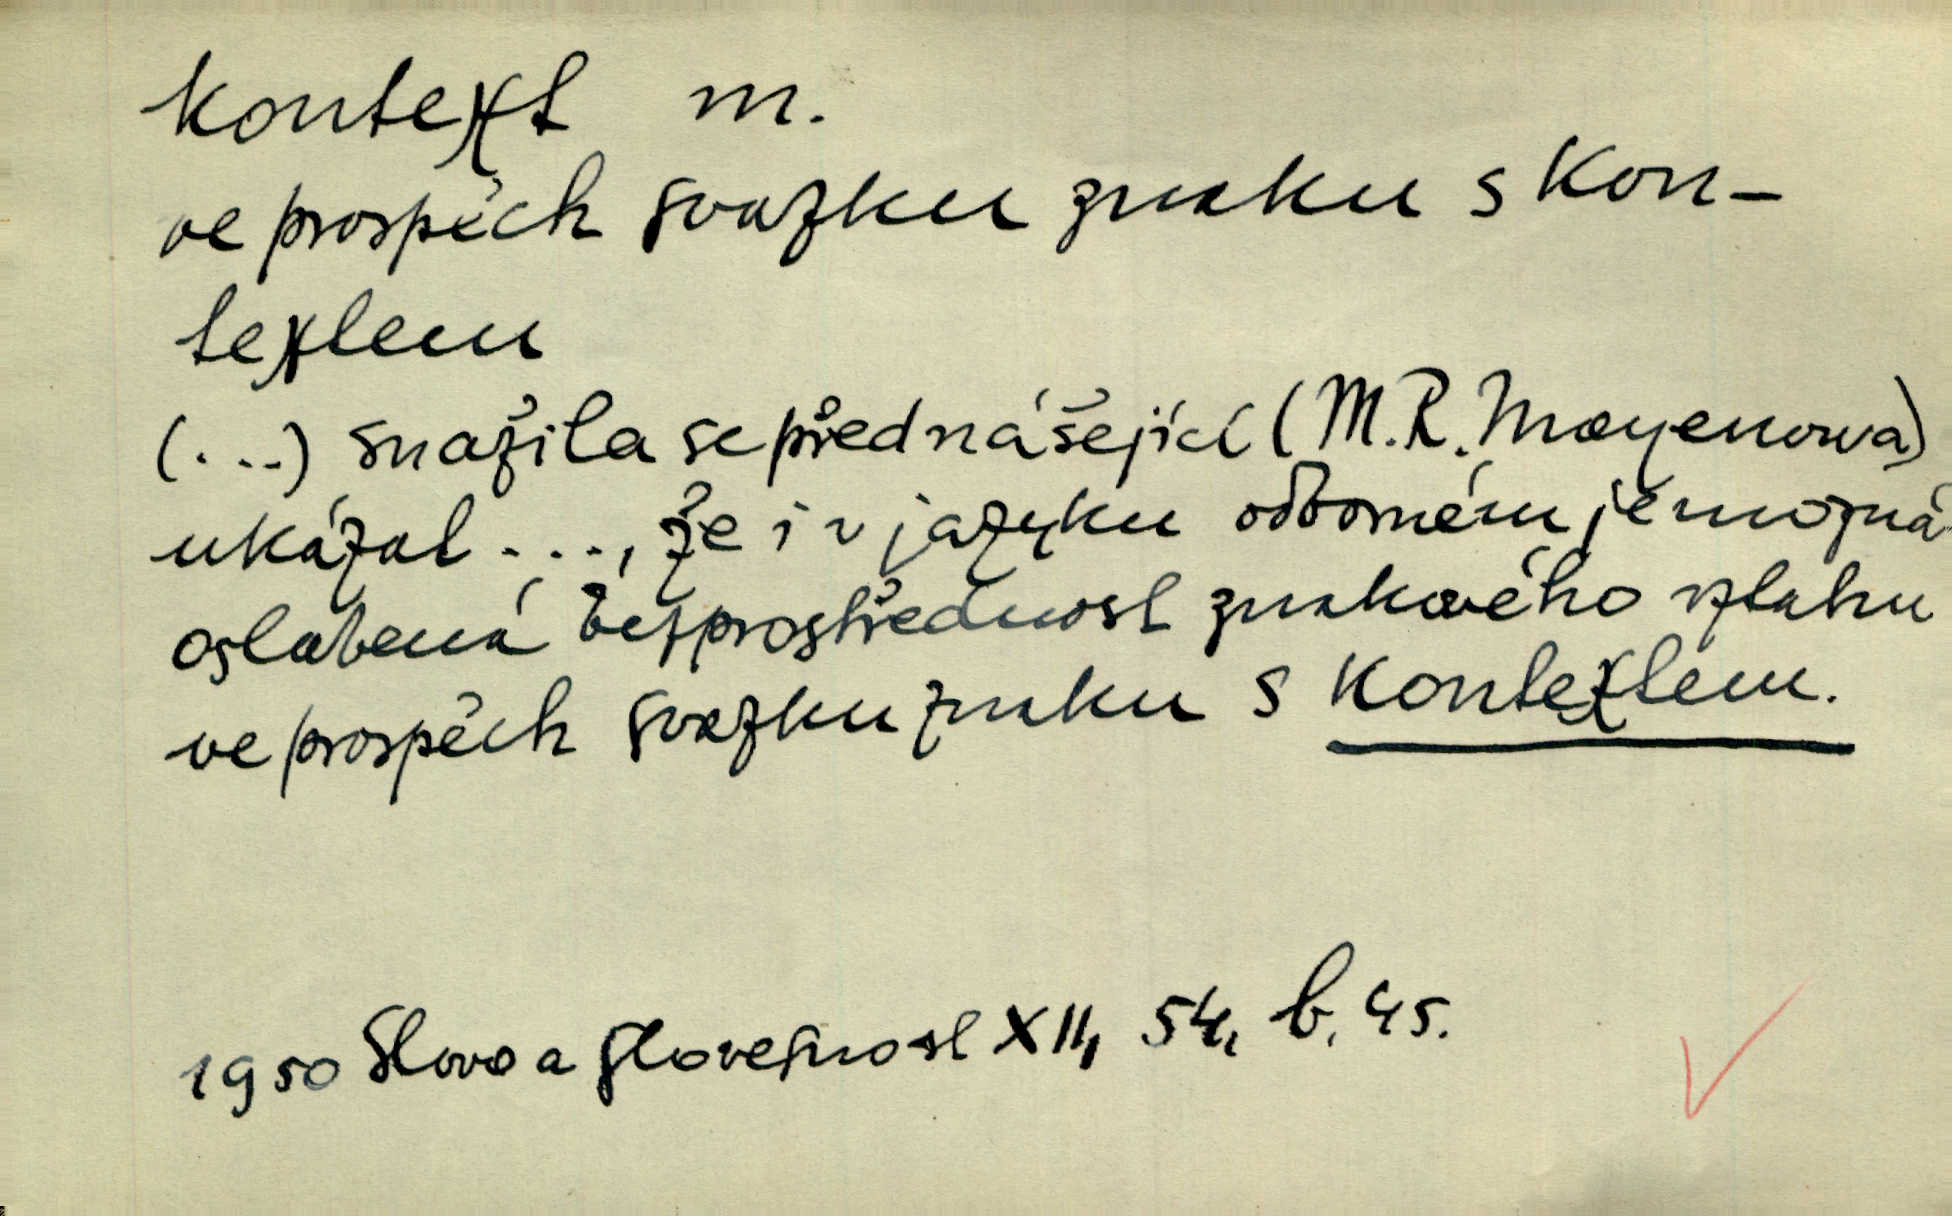 kontext m.
ve prospěch svazku znaku s kon-
textem
(...) snažila se přednášející (M. R. Mayenowa)
ukázal ..., že i v jazyku odborném je možná
oslabená bezprostřednost znakového vztahu
ve prospěch svazku znaku s kontextem.
1950 Slovo a slovesnost XII, 54, b. 45.